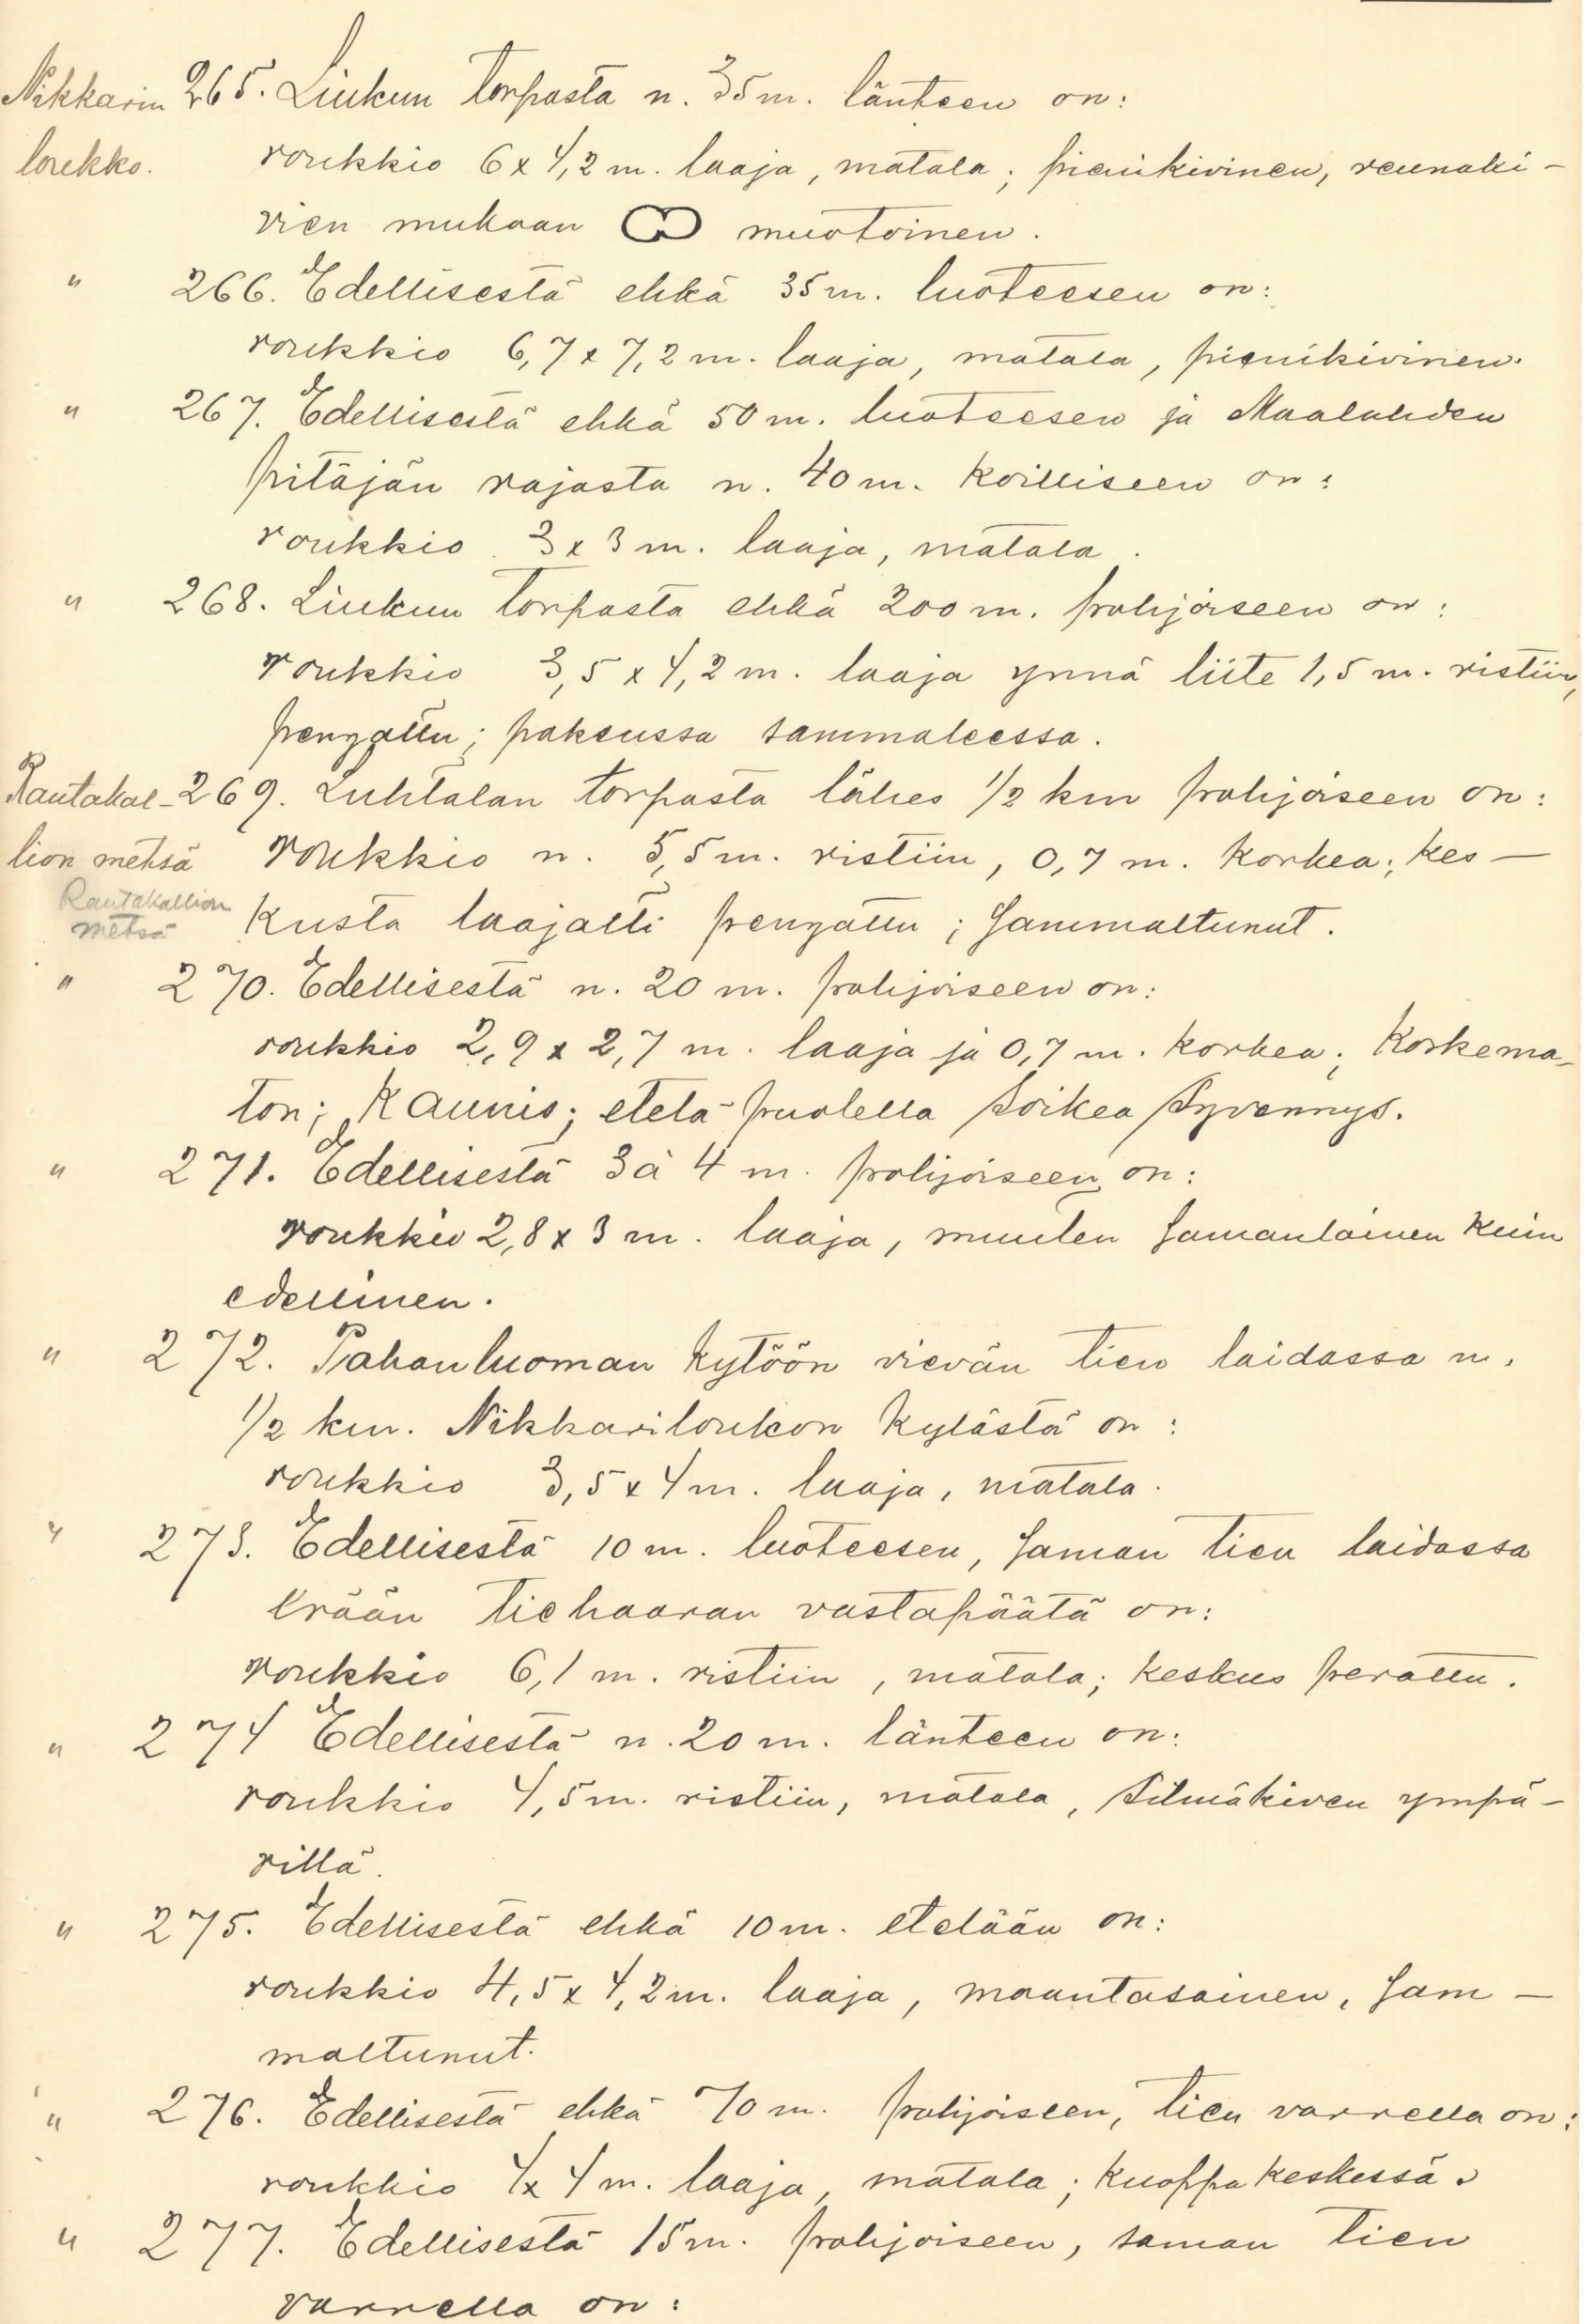 Nikkarin 265. Liukun torpasta n. 35 m. länteen on:
loukko. roukkio 6 x 4,2 m. laaja, matala; pienikivinen, reunaki-
vien mukaan muotoinen.
" 266. Edellisestä ehkä 35 m. luoteesen on:
roukkio 6,7 x 7,2 m. laaja, matala, pienikivinen.
" 267. Edellisestä ehkä 50 m. luoteesen ja Maalahden
pitäjän rajasta n. 40 m. koilliseen on:
roukkio 3 x 3 m. laaja, matala.
" 268. Liukun torpasta ehkä 200 m. pohjoiseen on:
roukkio 3,5 x 4,2 m. laaja ynnä liite 1,5 m. ristiin,
pengattu; paksussa sammaleessa.
Rautakal- 269. Luhtalan torpasta lähes 1/2 km pohjoiseen on:
lion metsä roukkio n. 5,5 m. ristiin, 0,7 m. korkea; kes-
Rautakallion
metsä kusta laajalti pengattu; sammaltunut.
" 270. Edellisestä n. 20 m. pohjoiseen on:
roukkio 2,9 x 2,7 m. laaja ja 0,7 m. korkea; koskema-
ton; kaunis; etelä-puolella soikea syvennys.
" 271. Edellisestä 3 à 4 m. pohjoiseen on:
roukkio 2,8 x 3 m. laaja, muuten samanlainen kuin
edellinen.
" 272. Pahanluoman kytöön vievän tien laidassa n.
1/2 km. Nikkariloukon kylästä on:
roukkio 3,5 x 4 m. laaja, matala.
" 273. Edellisestä 10 m. luoteesen, saman tien laidassa
erään tiehaaran vastapäätä on:
roukkio 6,1 m. ristiin, matala; keskus perattu.
" 274 Edellisestä n. 20 m. länteen on:
roukkio 4,5 m. ristiin, matala, silmäkiven ympä-
rillä.
" 275. Edellisestä ehkä 10 m. etelään on:
roukkio 4,5 x 4,2 m. laaja, maantasainen, sam-
maltunut.
" 276. Edellisestä ehkä 70 m. pohjoiseen, tien varrella on:
roukkio 4 x 4 m. laaja, matala; kuoppa keskessä.
" 277. Edellisestä 15 m. pohjoiseen, saman tien
varrella on: